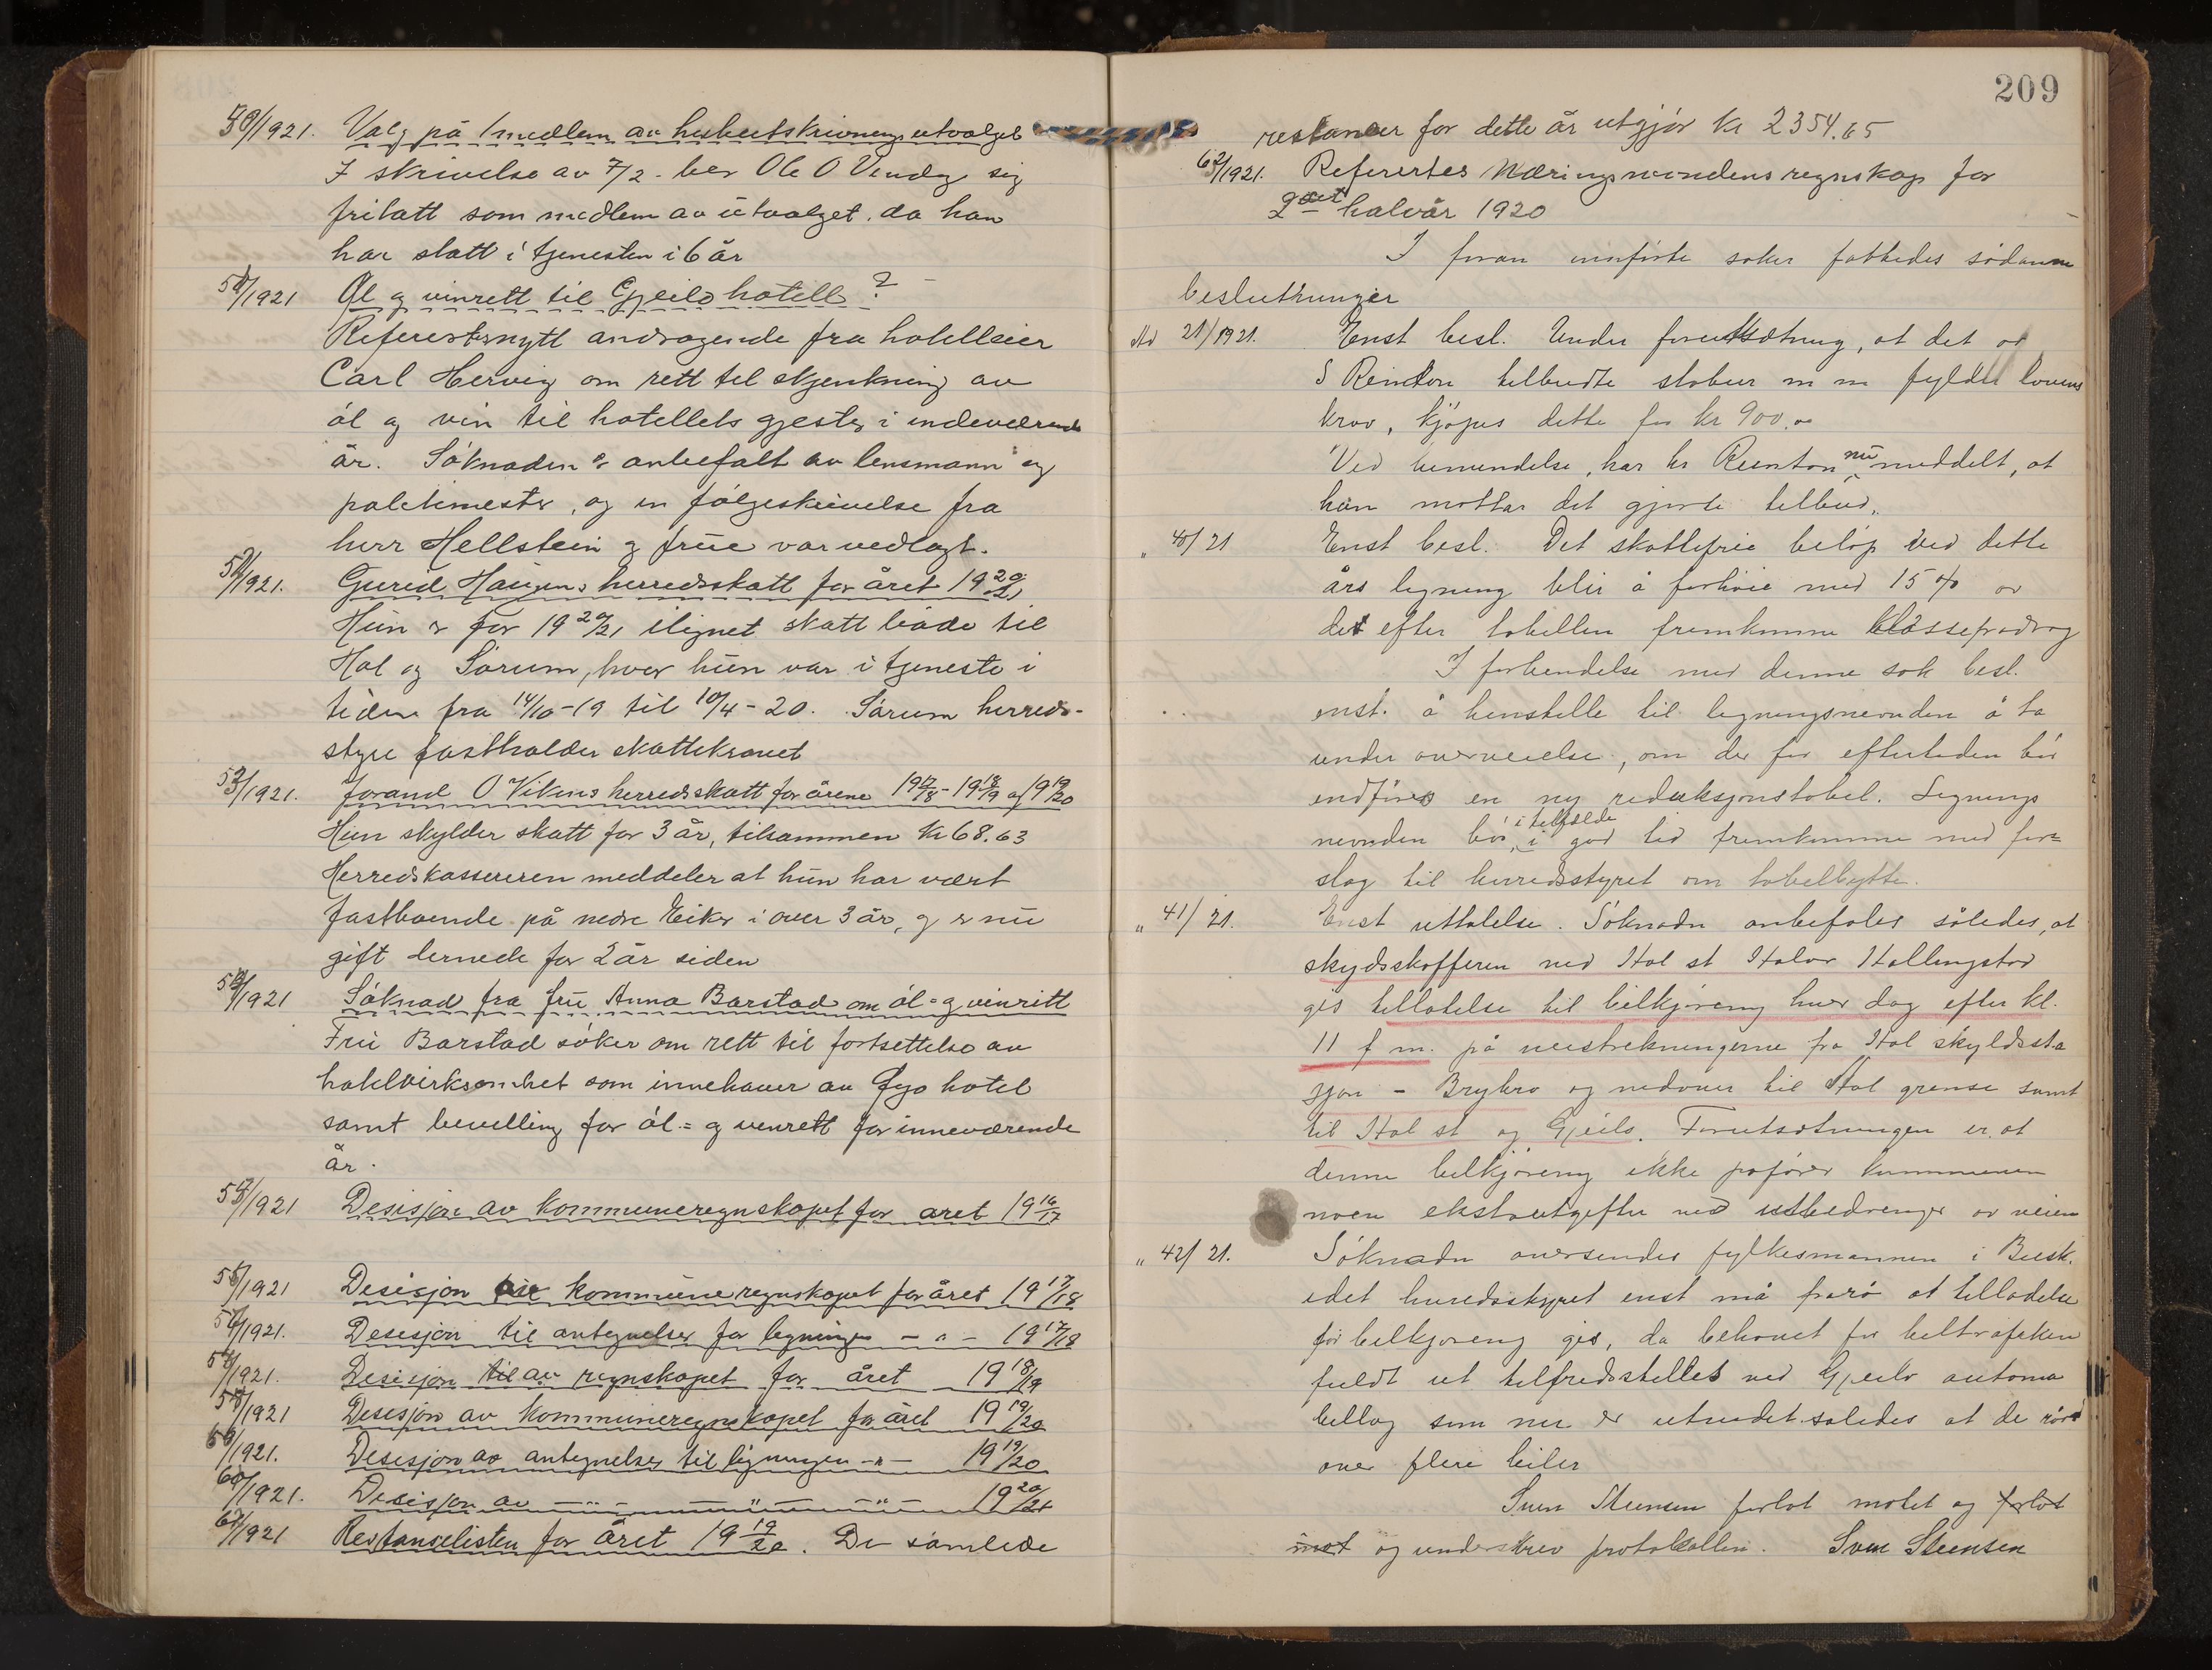 50/1921. Valg på 1 medlem av hesteutskrivningsutvalget
I skrivelse av 7/2. ber Ole O Vindeg sig
fritatt som medlem av utvalget. da han
har statt i tjenesten i 6 år
51/1921 Øl og vinrett til Gjeilo hotell ?
Refererteśnytt andragende fra hotelleier
Carl Hervig om rett til skjenkning av
øl og vin til hotellets gjester i indeværende
år. Søknaden er anbefalt av lensmann og
politimester, og en følgeskrivelse fra
herr Hellstein og frue var vedlagt.
52/1921. Gurid Haugens herredsskatt for året 1920/21
Hun er for 1920/21 ilignet skatt både til
Hol og Sørum, hvor hun var i tjeneste i
tiden fra 14/10-19 til 10/4-20. Sørum herreds-
styre fastholder skattekravet
53/1921. Jorand O Vikens herredsskatt for årene 1917/18 - 1918/19 og 1919/20
Hun skylder skatt for 3 år, tilsammen Kr 68.63
Herredskassereren meddeler at hun har vært
fastboende på nedre Eiker i over 3 år, og er nu
gift dernede for 2 år siden
54/1921 Søknad fra fru Anna Barstad om øl= og vinrett
Fru Barstad søker om rett til fortsettelse av
hotelvirksomhet som innehaver av Øyo hotel
samt bevilling for øl= og vinrett for inneværende
år.
55/1921 Desisjon av kommuneregnskapet for aret 1916/17
/1921 Desisjon av kommuneregnskapet for året 1917/18
/1921. Desisjon til antegnelser for ligningen — " — 1917/18
/1921. Desisjon til av regnskapet for året 1918/19
/1921 Desisjon av Kommuneregnskapet for året 1919/20
/1921. Desisjon av antegnelser til ligningen -"- 1919/20
60/1921. Desisjon av — " — — " — — " — 1920/21
61/1921 Restanselisten for året 1919/20. De samlede
209
restanser for dette år utgjør Kr 2354.65
62/1921. Refertes Næringsnevndens regnskap for
2det halvår 1920
I foran innførte saker fattedes sådanne
beslutninger
Ad 21/1921. Enst besl. Under forutsætning, at det av
S Reinton tilbudte stabur m m fylder lovens
krav, kjøpes dette for kr 900.00
Ved henvendelse, har hr Reinton nu meddelt, at
han mottar det gjorte tilbud.
" 40/21 Enst besl. Det skattefrie beløp ved dette
års ligning blir å forhøie med 15 % av
det efter tabellen fremkomne klassefradrag
I forbindelse med denne sak besl.
enst. å henstille til ligningsnevnden å ta
under overveielse, om der for eftertiden bør
indføres en ny reduksjonstabel. Lignings
nevnden bør i tilfælde i god tid fremkomme med for=
slag til herredsstyret om tabelbytte.
" 41/21. Enst uttalelse. Søknadn anbefales således, at
skydsskafferen ved Hol st Halvor Hallingstad
gis tillatelse til bilkjøring hver dag efter kl.
11 f m. på veistrekningerne fra Hol skyldssta
sjon - Brybro og nedover til Hol grense samt
til Hol st og Gjeilo. Forutsætningen er at
denne bilkjøring ikke påfører kommunen
noen ekstrautgifter ved utbedringer av veien
" 42/21. Søknadn oversendes fylkesmannen i Busk.
idet herredsstyret enst må frarå at tilladelse
for bilkjøring gis, da behovet for biltrafiken
fuldt ut tilfredsstilles ved Gjeilo automo
billag som nu er utvidet således at de råder
over flere biler
Sven Steensen forlot møtet og forlot
møt og underskrev protokollen. Sven Steensen